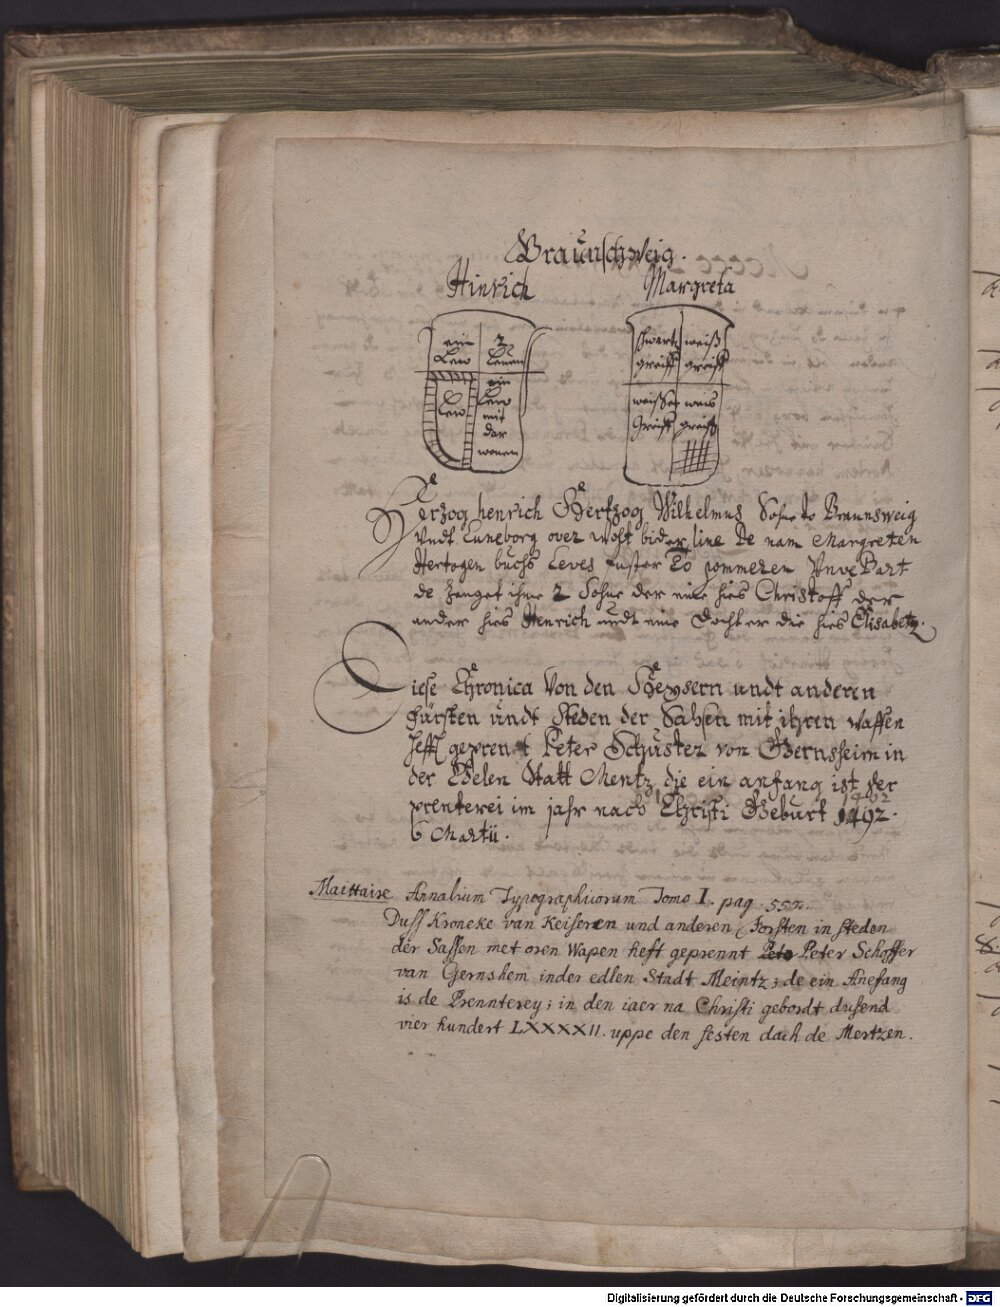 Braunschweig.
Hinrich Margreta
ein Lew
2 Leuen
ein Lew
ein Lew mit dar wonen
schwartz greiff
weiß greiff
weisser Greiff
weis greiff
Herzog henrich Hertzog Wilhelmus Sohne to Braunsweig
Vndt Luneborg over woht bider line de nam Margreten
Hertogen buchs Leves suster to pommeren Vnve Bart
de zenget ihme 2 Sohne der eine hies Christoff der
ander hies Henrich undt eine Dochter die hies Elisabetz.
Diese Chronica Von den Keysern undt anderen
fürsten undt Steden der Sahsen mit ihren waffen
hefft geprent Peter Schuster von Gernsheim in
der Edelen Statt Mentz die ein anfang ist der
prenterei im jahr nach Christi Geburt 1492.
6 Martii.
Maittaire Annalium Typographicorum Tomo I. pag. 552.
Duss Kroneke van Keiseren und anderen Forsten in steden
der Sassen met oren Wapen heft geprennt Peter Schoffer
van Gernshem inder edlen Stadt Meintz; de ein Anefang
is de Prennterey; in den iaer na Christi gebordt dusend
vier hundert LXXXXII. uppe den sesten dach de Mertzen.
Digitalisierung gefördert durch die Deutsche Forschungsgemeinschaft - DFG